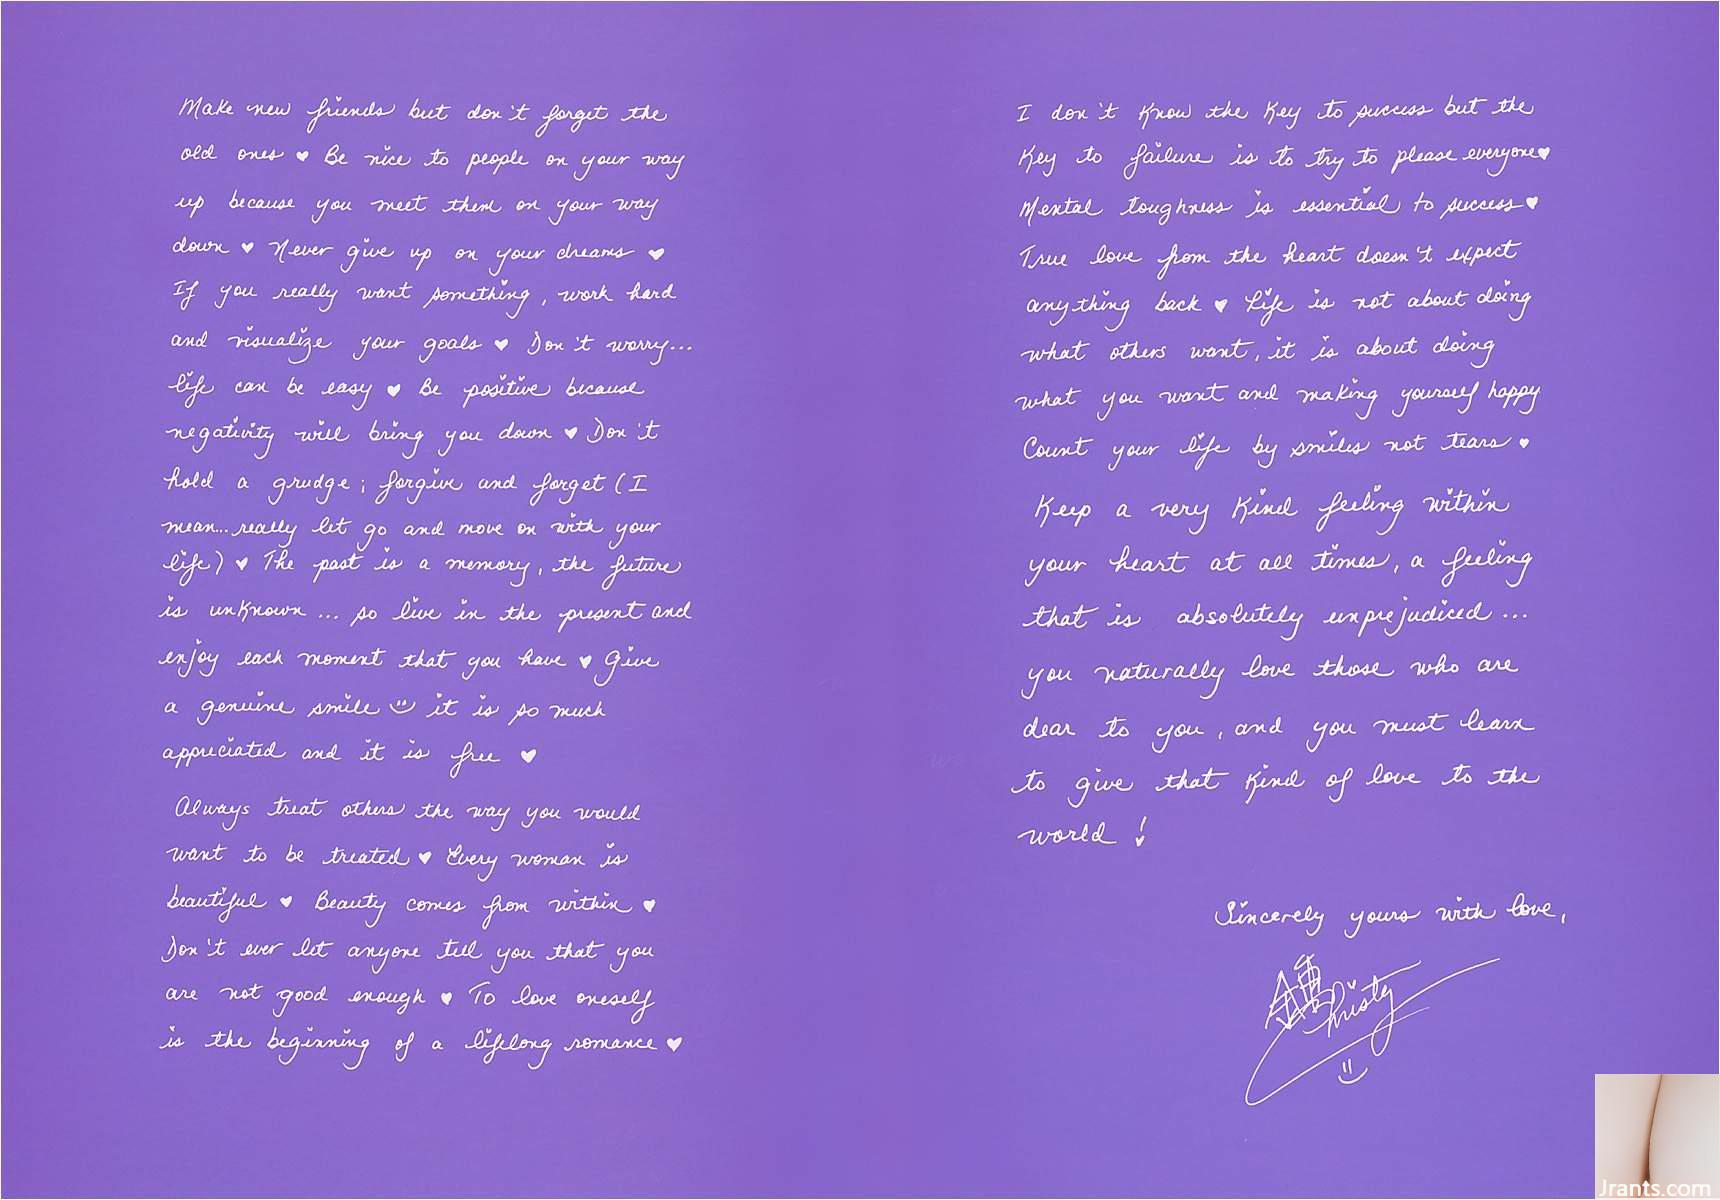 Make new friends but don't forget the
old ones ♥ Be nice to people on your way
up because you meet them on your way
down ♥ Never give up on your dreams ♥
If you really want something, work hard
and visualize your goals ♥ Don't worry...
life can be easy ♥ Be positive because
negativity will bring you down ♥ Don't
hold a grudge; forgive and forget (I
mean... really let go and move on with your
life) ♥ The past is a memory, the future
is unknown... so live in the present and
enjoy each moment that you have ♥ Give
a genuine smile it is so much
appreciated and it is free ♥
Always treat others the way you would
want to be treated ♥ Every woman is
beautiful ♥ Beauty comes from within ♥
Don't ever let anyone tell you that you
are not good enough ♥ To love oneself
is the beginning of a lifelong romance ♥
I don't know the key to success but the
key to failure is to try to please everyone ♥
Mental toughness is essential to success ♥
True love from the heart doesn't expect
anything back ♥ Life is not about doing
what others want, it is about doing
what you want and making yourself happy
Count your life by smiles not tears ♥
Keep a very kind feeling within
your heart at all times, a feeling
that is absolutely unprejudiced...
you naturally love those who are
dear to you, and you must learn
to give that kind of love to the
world!
Sincerely yours with love,
Christy
Jrants.com